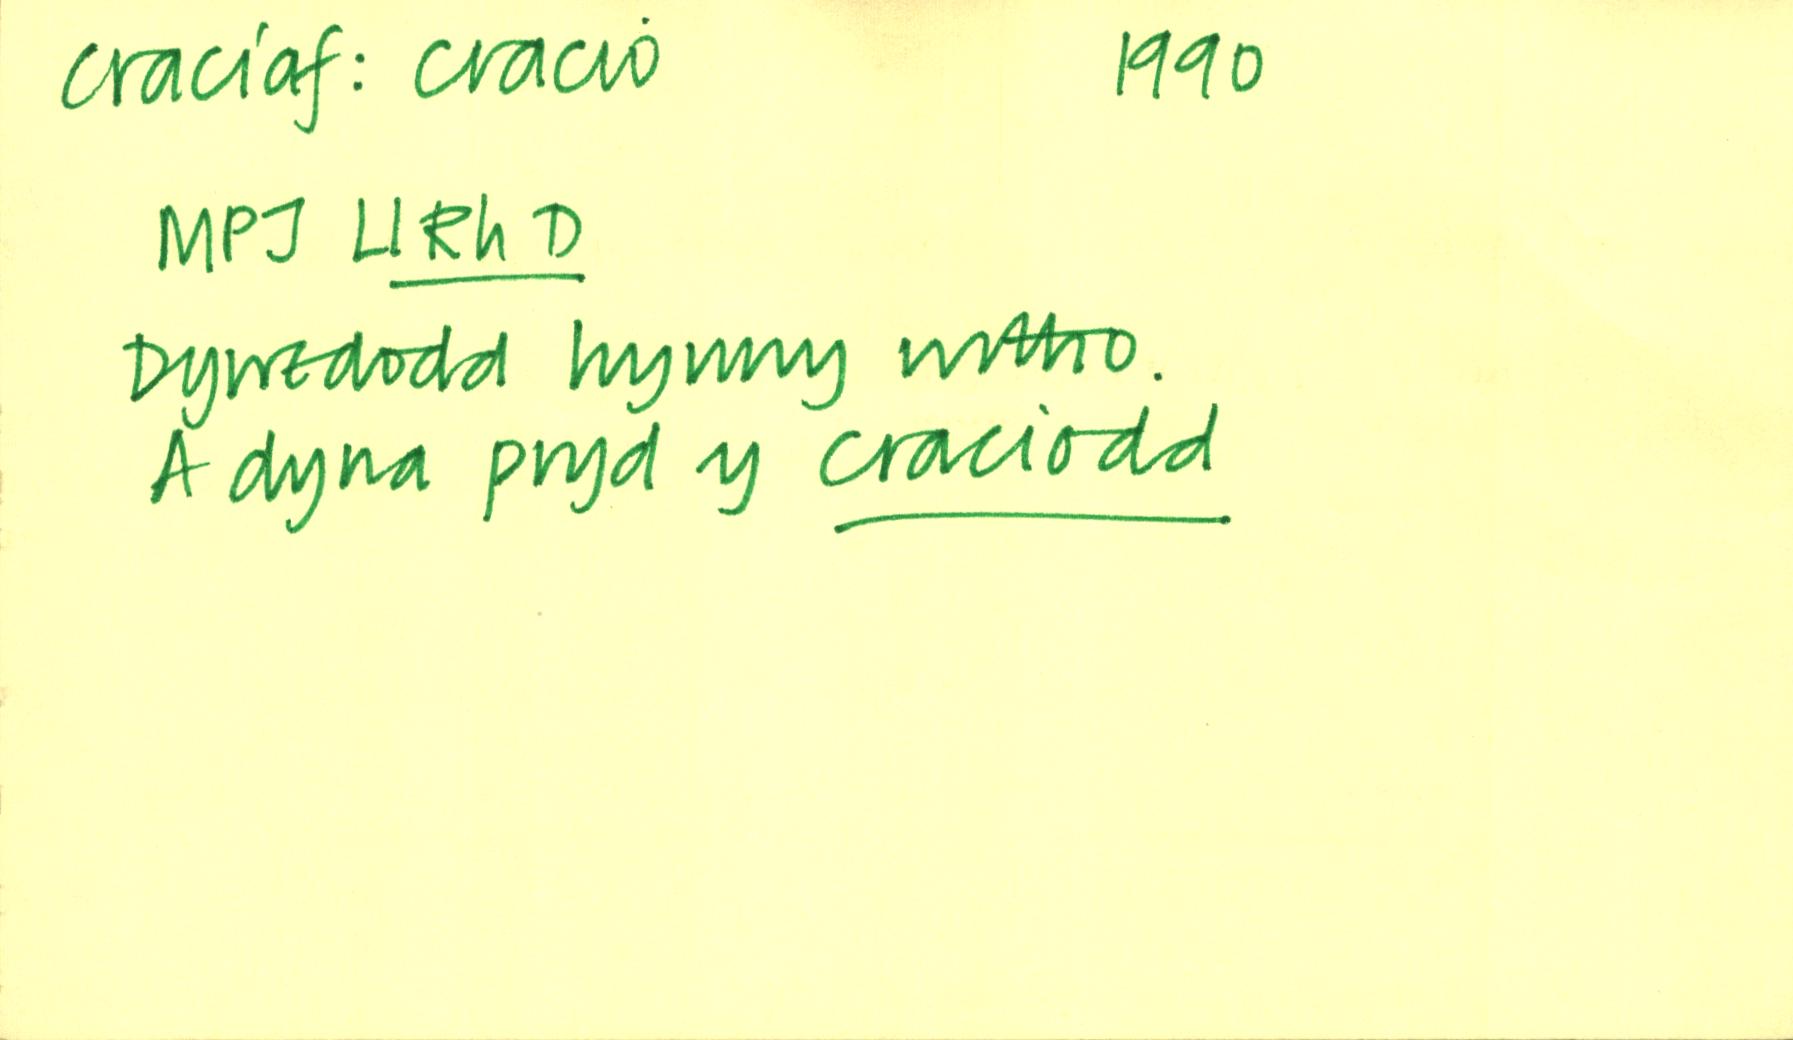 craciaf: cracio 1990
MPJ LlRhD
Dywedodd hynny wrtho.
A dyna pryd y craciodd